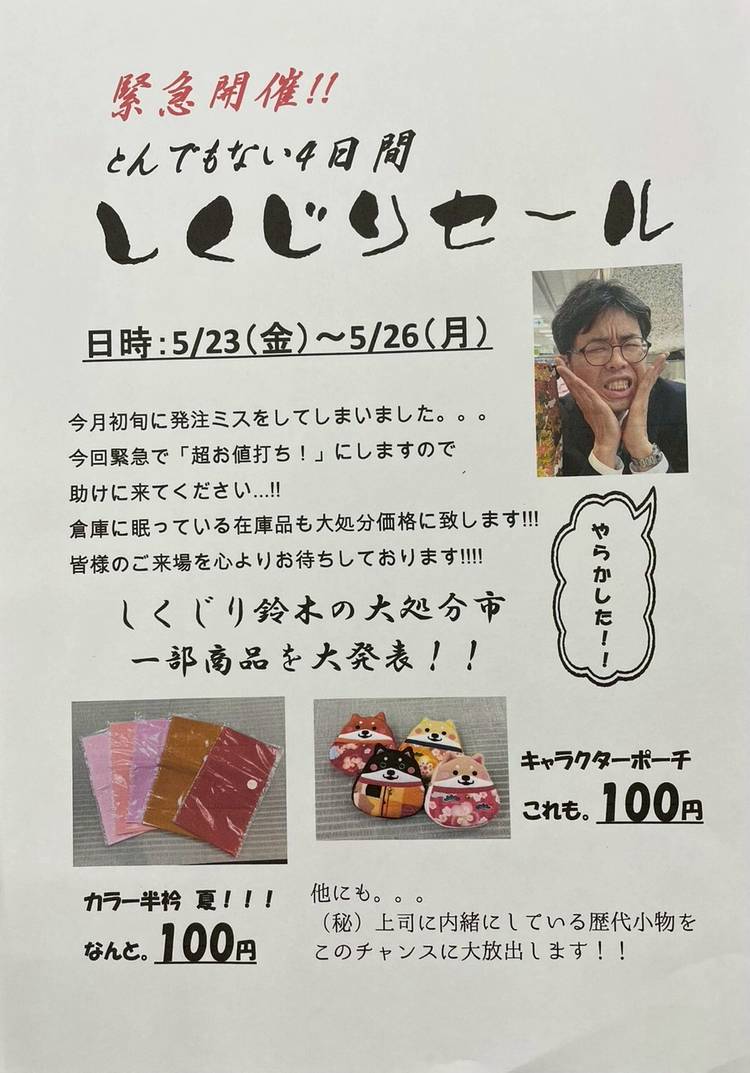 緊急開催!!
とんでもない4日間
しくじりセール
日時：5/23（金）～5/26（月）
今月初旬に発注ミスをしてしまいました。。。
今回緊急で「超お値打ち！」にしますので
助けに来てください...!!
倉庫に眠っている在庫品も大処分価格に致します!!!
皆様のご来場を心よりお待ちしております!!!!
やらかした！！
しくじり鈴木の大処分市
一部商品を大発表！！
キャラクターポーチ
これも。100円
カラー半衿 夏！！！
なんと。100円
他にも。。。
（秘）上司に内緒にしている歴代小物を
このチャンスに大放出します！！